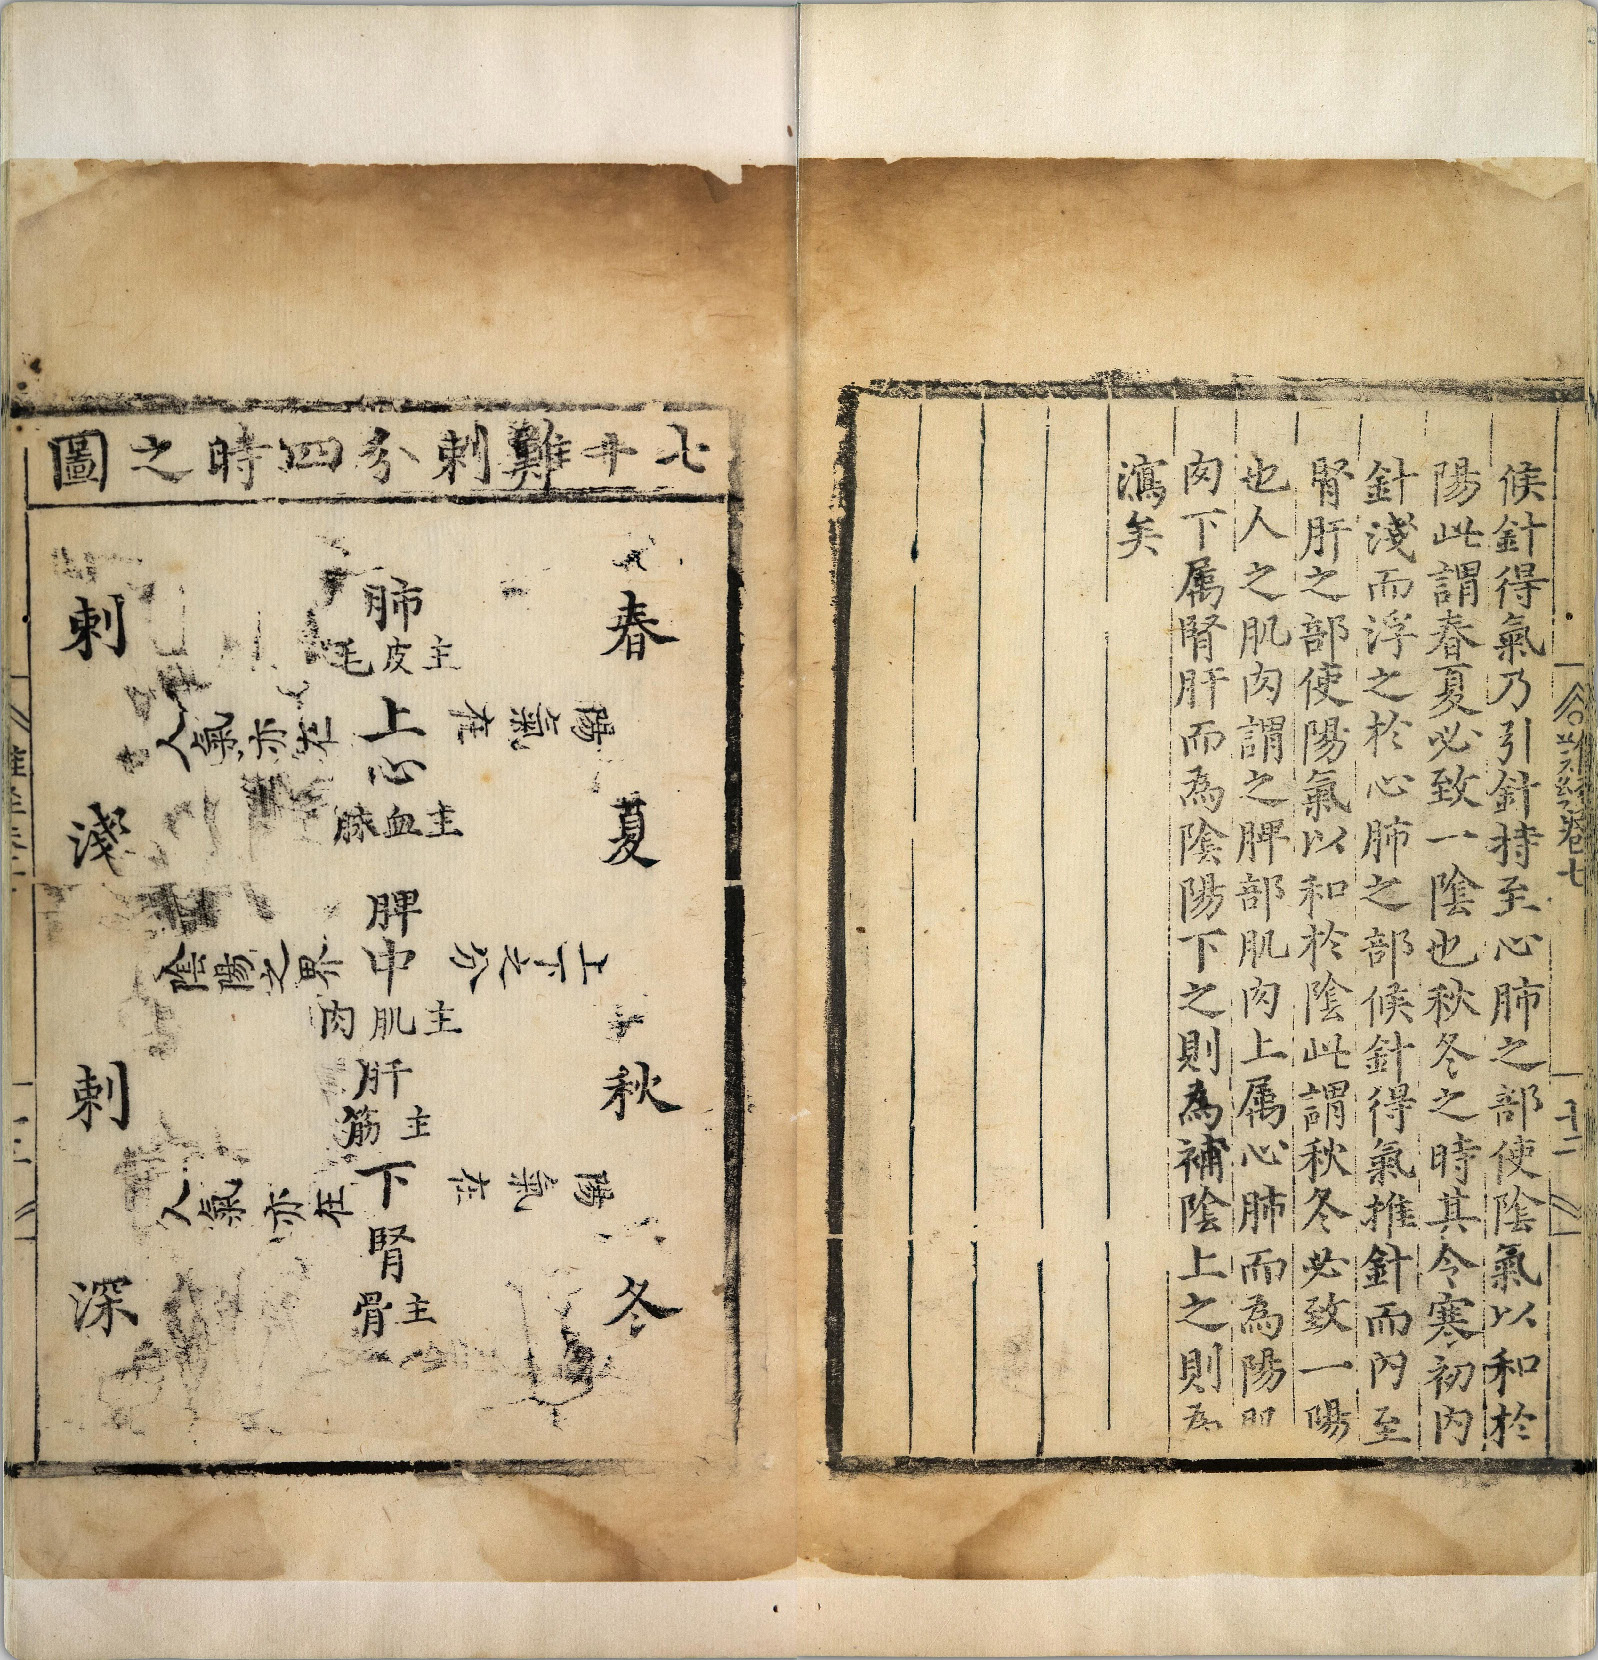 候針得氣乃引針持至心肺之部使陰氣以和於
陽此謂春夏必致一陰也秋冬之時其令寒初內
針淺而浮之於心肺之部候針得氣推針而內至
腎肝之部使陽氣以和於陰此謂秋冬必致一陽
也人之肌肉謂之脾部肌肉上属心肺而為陽肌
肉下属腎肝而為陰陽下之則為補陰上之則為
瀉矣
難經卷七
十二
七十難刺分四時之圖
春
夏
秋
冬
陽氣在
上下之分
陽氣在
肺
主皮毛
上
心
主血脉
脾
中
主肌肉
肝
主筋
下
腎
主骨
人氣亦在
陰陽之界
人氣亦在
刺
淺
刺
深